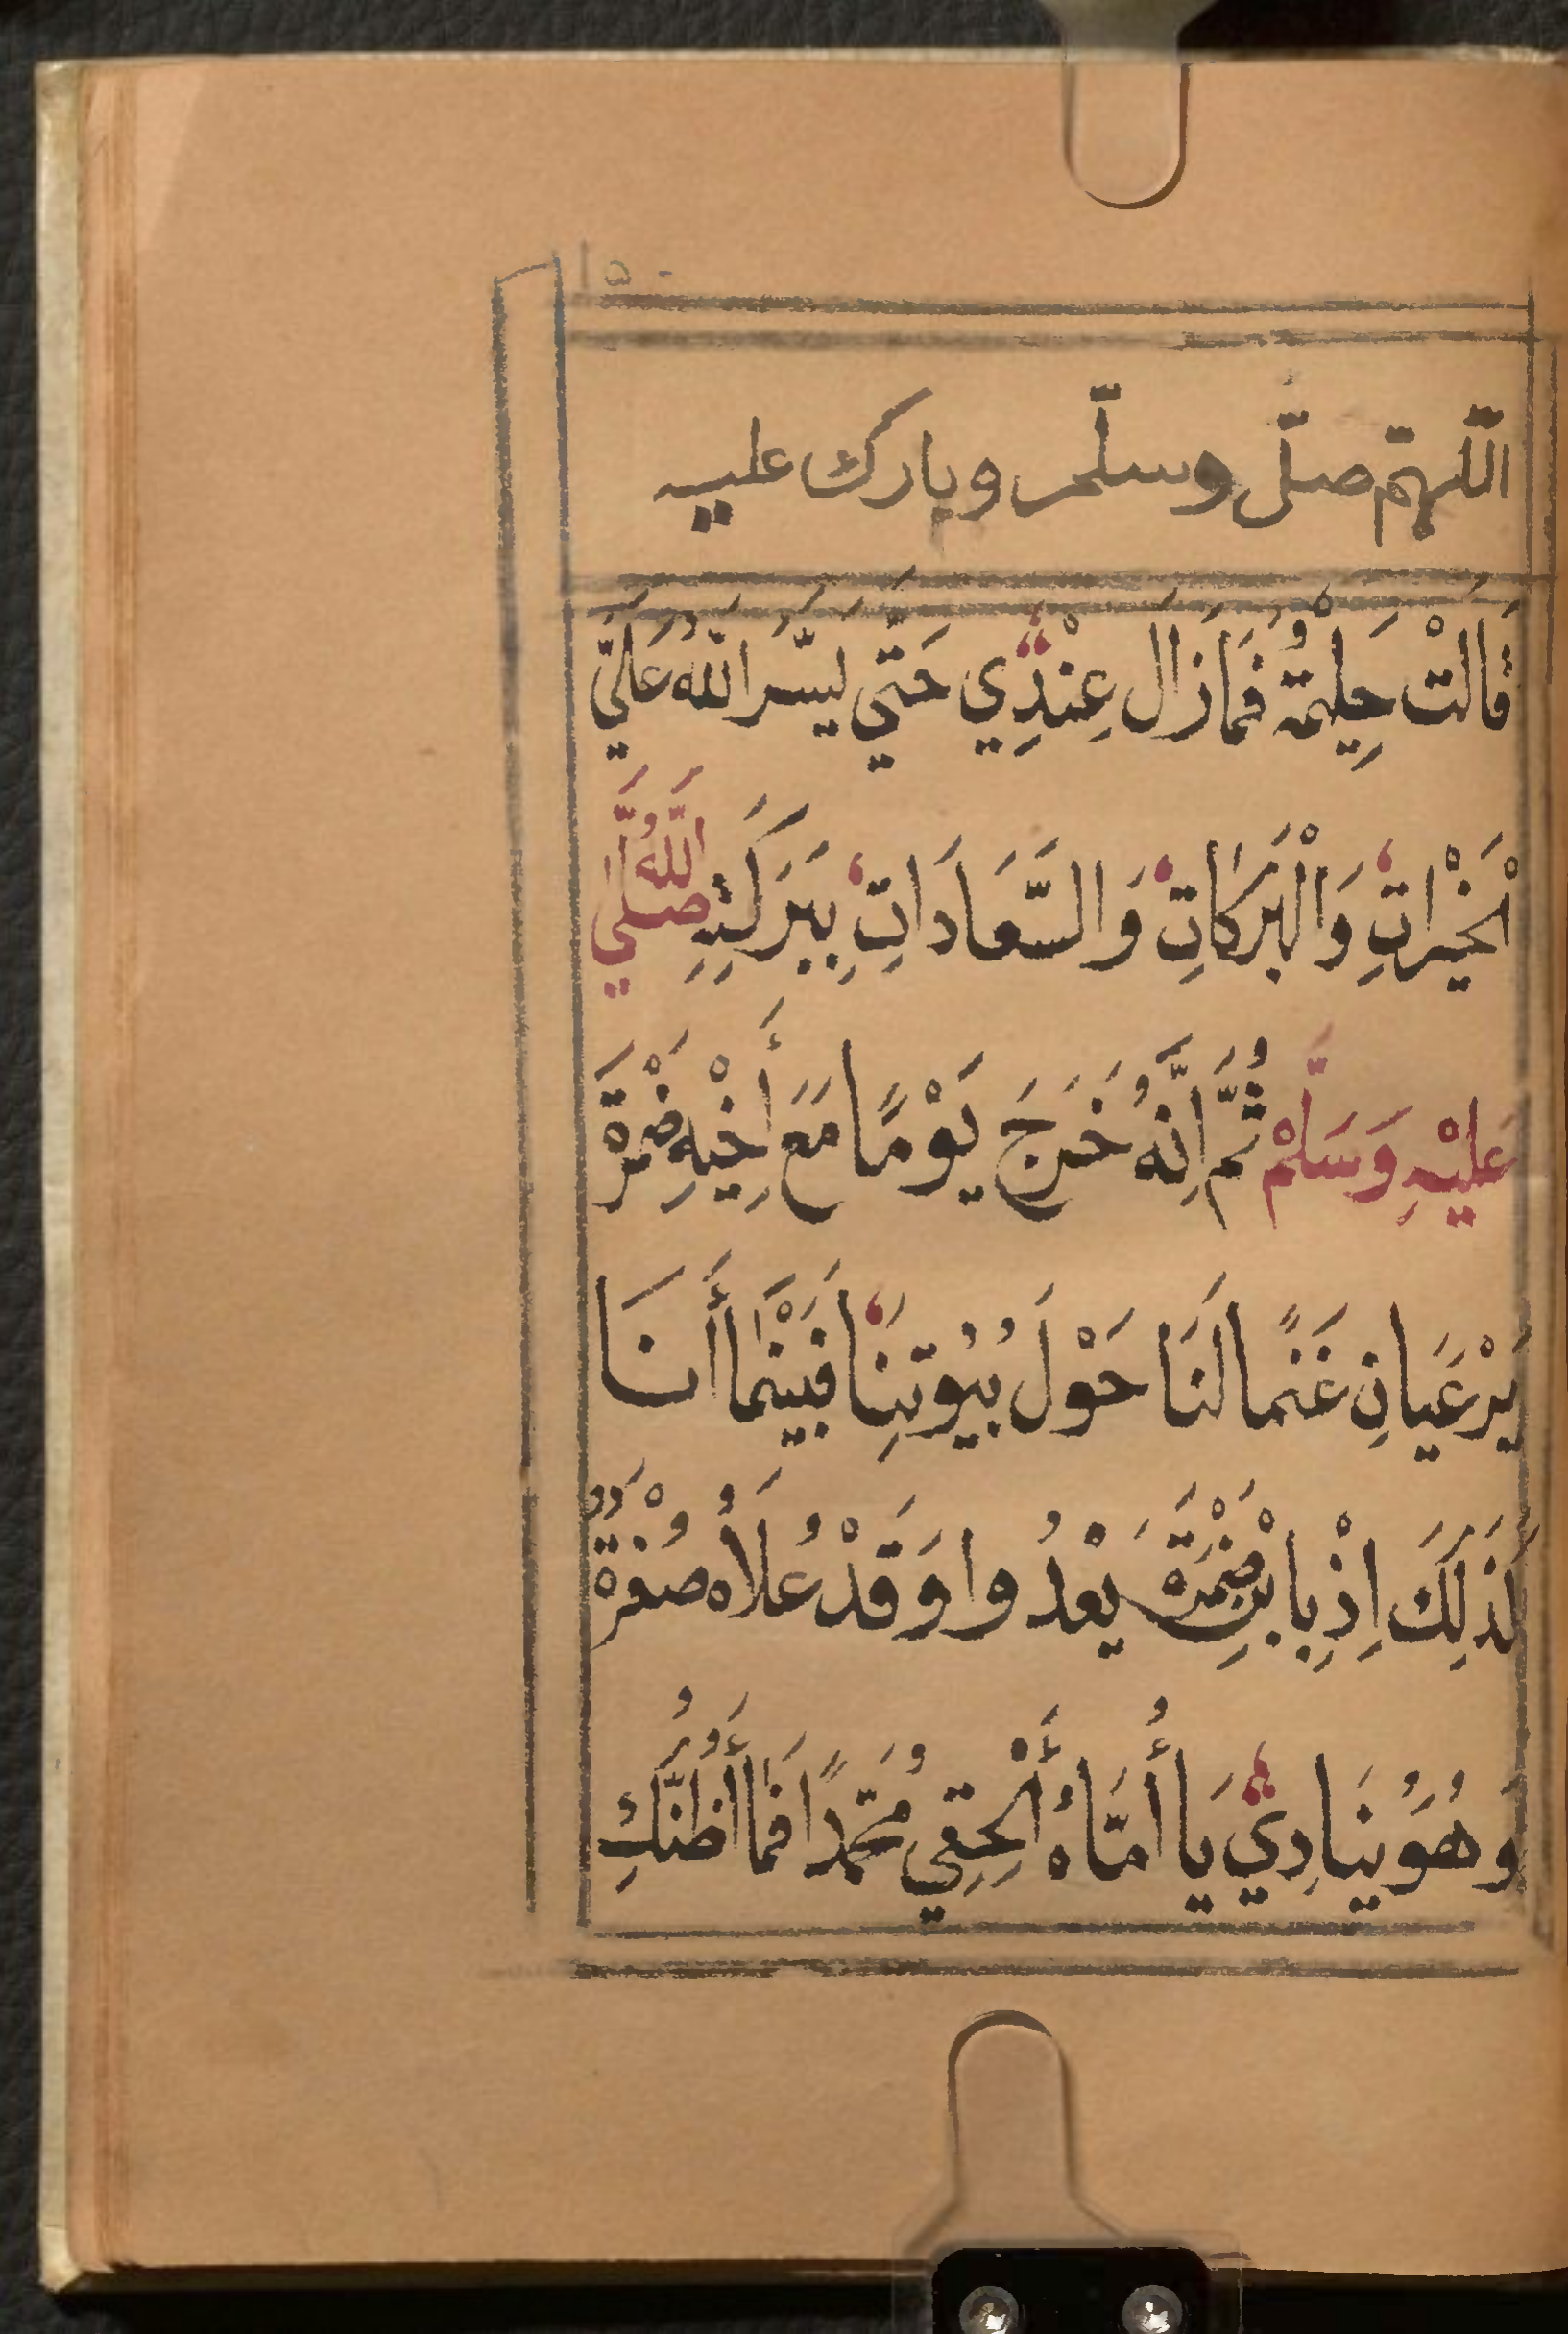 ١٥٠
اللّهمّ صلّ وسلّم وبارك عليه
قَالَتْ حَلِيْمَةُ فَمَازَالَ عِنْدِي حَتَّي يَسَّرَ اللّٰهُ عَلَيَّ
الْخَيْرَاتِ وَالْبَرَكَاتِ وَالسَّعَادَاتِ بِبَرَكَتِهِ صَلَّي اللّٰهُ
عَلَيْهِ وَسَلَّمْ ثُمَّ اِنَّهُ خَرَجَ يَوْمًا مَعَ أَخِيْهِ ضَمْرَةَ
يَرْعَيَانِ غَنَمًا لَنَا حَوْلَ بُيُوْتِنَا فَبَيْنَمَا أَنَا
كَذَلِكَ اِذْ بِابْنِي ضَمْرَةَ يَعْدُوا وَقَدْ عَلَاهُ صُفْرَةٌ
وَهُوَ يُنَادِي يَا أُمَّاهُ أَلْحِقِي مُحَمَّدًا فَمَا أَظُنُّكِ